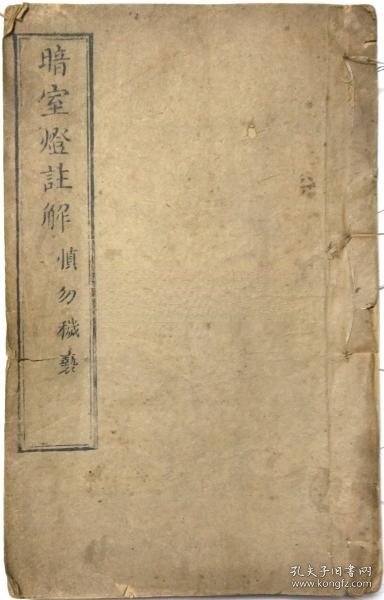 暗室燈註解 慎勿穢褻
孔夫子旧书网